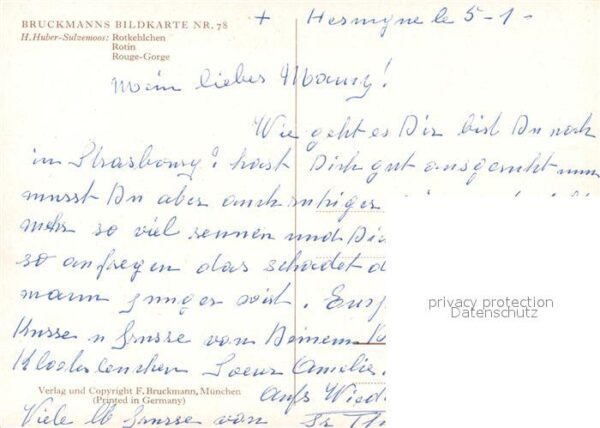 BRUCKMANNS BILDKARTE NR. 78
H. Huber-Sulzemoos: Rotkehlchen
Rotin
Rouge-Gorge
+ le 5-1-
Mein lieber
Wie geht es Dir bist Du noch
im Strasbourg? hast Dich gut ausgeruht nun
musst Du aber auch ruhiger
mehr so viel rennen und Dic
so aufregen das schadet d
mann junger wird.
Küsse u Grüsse von Deinem
Soeur Amelie.
Verlag und Copyright F. Bruckmann, München
(Printed in Germany)
Aufs Wied
Viele lb Grüsse von Sr Th
privacy protection
Datenschutz